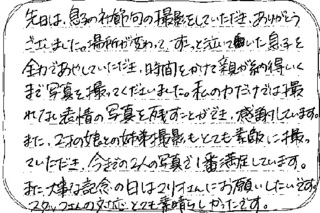 先日は、息子の初節句の撮影をしていただき、ありがとう
ございました。場所が変わって、ずっと泣いていた息子を
全力であやしていただき、時間をかけて親が納得いく
まで写真を撮ってくださいました。私の力だけでは撮
れない表情の写真を残すことができ、感謝しています。
また、2才の娘との姉弟撮影もとても素敵に撮っ
ていただき、今までの2人の写真で1番満足しています。
また、大事な記念の日はスタリオさんにお願いしたいです。
スタッフさんの対応とても素晴らしかったです。